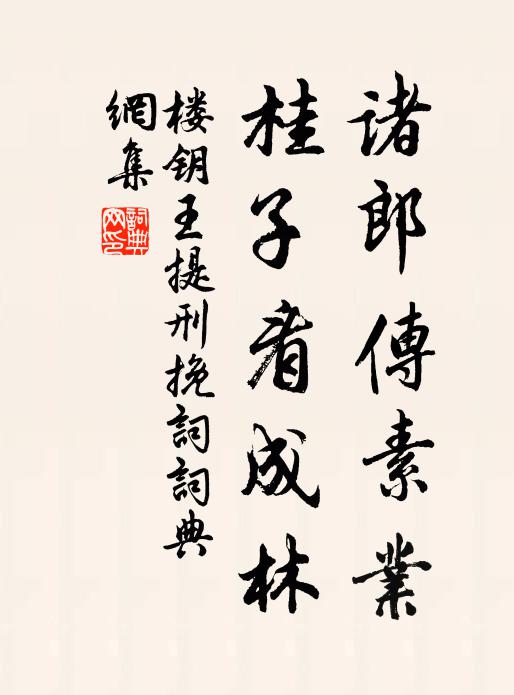 诸郎傳素業
桂子看成林
楼钥王提刑挽詞詞典
網集
詞典网印